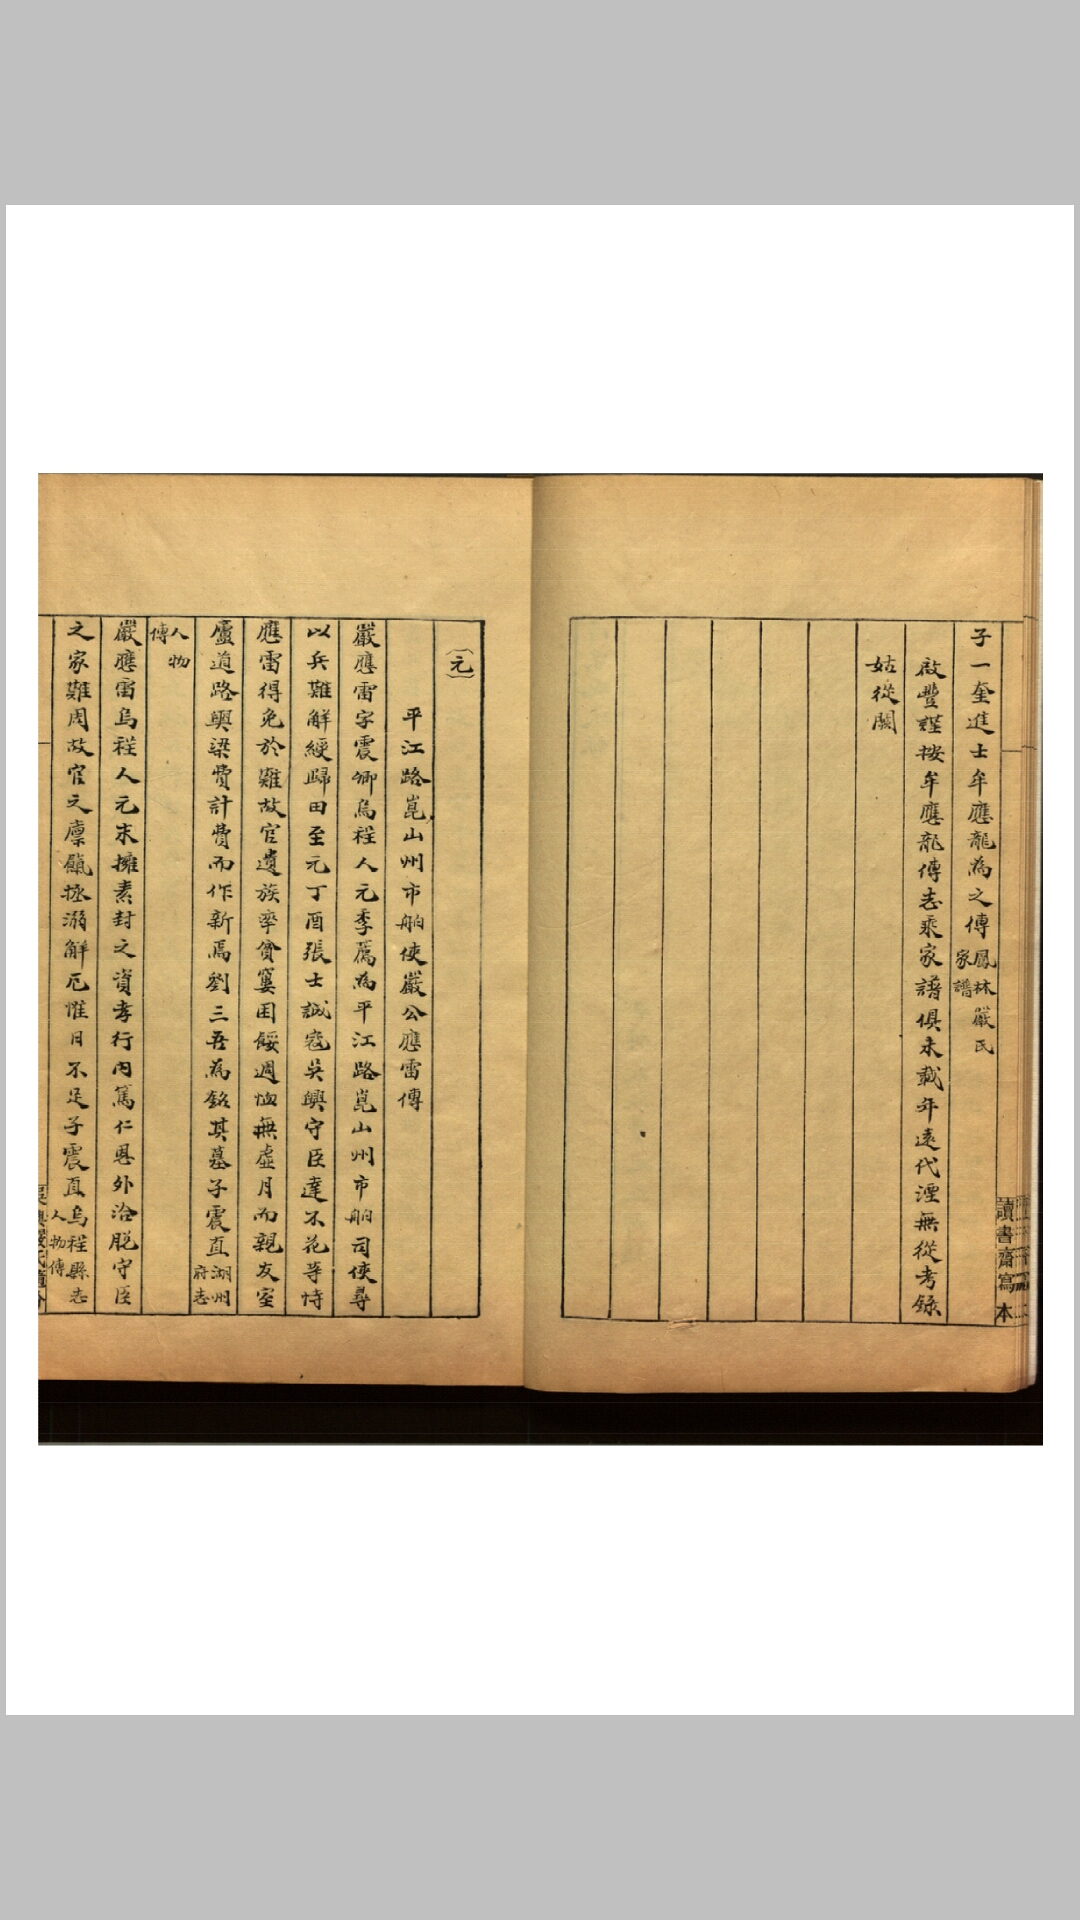 子一奎進士牟應龍為之傳鳳林嚴氏家譜
啟豐謹按牟應龍傳志乘家譜俱未載年遠代湮無從考錄
姑從闕
讀書齋寫本
(元)
平江路崑山州市舶使嚴公應雷傳
嚴應雷字震卿烏程人元季薦為平江路崑山州市舶司使尋
以兵難解綬歸田至元丁酉張士誠寇吳興守臣達不花等恃
應雷得免於難故官遺族率貧窶困餒週恤無虛月而親友室
廬道路輿梁費計費而作新焉劉三吾為銘其墓子震直湖州府志
人物傳
嚴應雷烏程人元末擁素封之資孝行內篤仁恩外洽脫守臣
之家難周故官之廩氎拯溺解厄惟日不足子震直烏程縣志人物傳